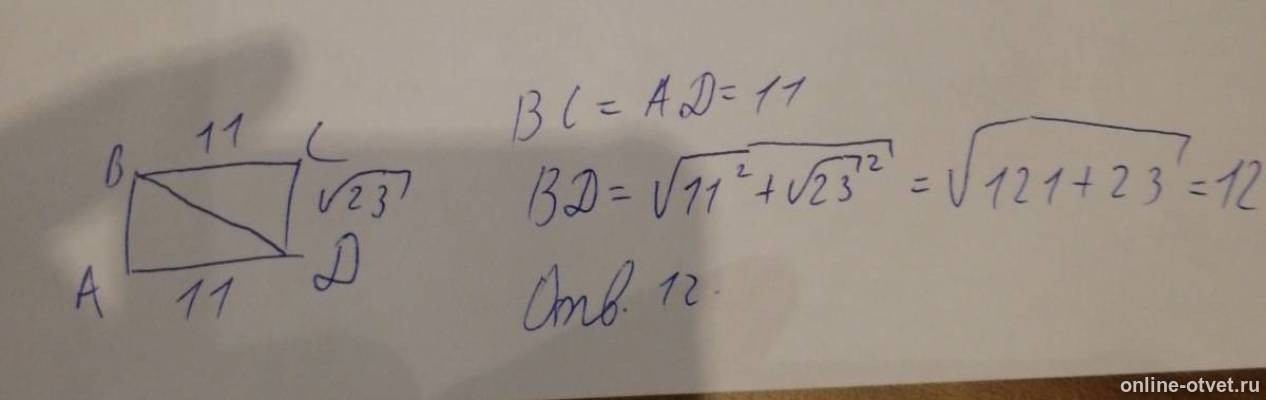 11
B C
√23
A D
11
BC = AD = 11
BD = √11² + √23² = √121 + 23 = 12
Отв. 12.
online-otvet.ru